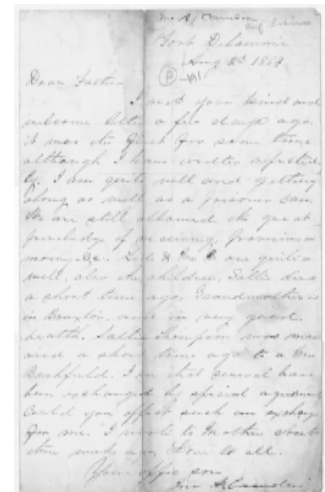 Fort Delaware
Aug 2d 1864
Dear Father
I rec'd your kind and
welcome letter a few days ago.
it was the first for some time
although I have written repeated-
ly. I am quite well and getting
along as well as a prisoner can.
We are still allowed the great
priviledge of receiving provisions
money &c. are quite
well, also the children, Sallie died
a short time ago, Grandmother is
in Braxton, and in very good
health. Sallie Thompson was mar-
ried a short time ago to a Mr
I that several have
been exchanged by special agreement
Could you effect such an exchange
for me. I wrote to Mother some
time weeks ago, Love to all.
Your affec son